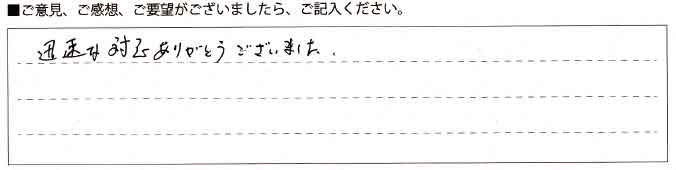 ■ご意見、ご感想、ご要望がございましたら、ご記入ください。
迅速な対応ありがとうございました.